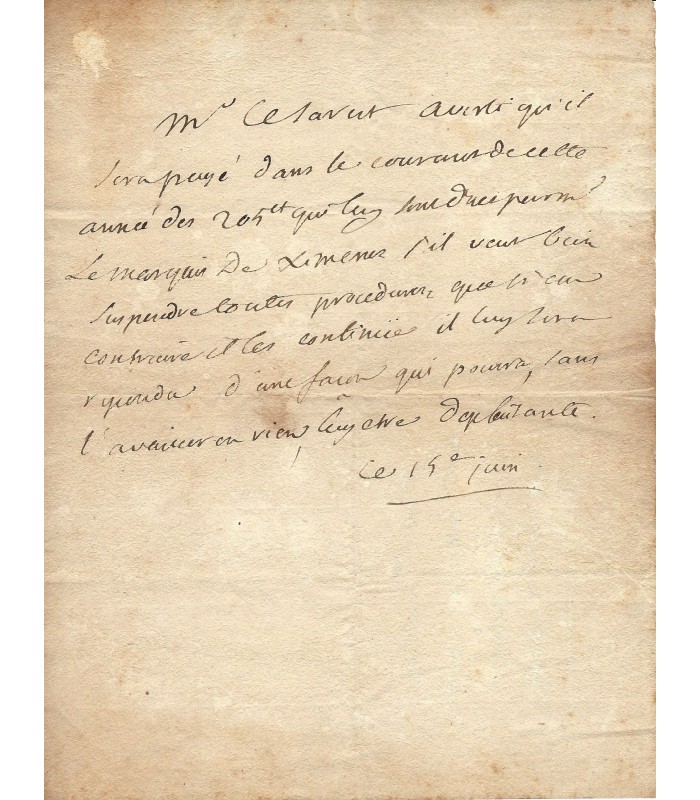 Mr Cesar est averti qu'il
sera payé dans le courant de cette
année des 205tt qui luy sont dues par mr
Le marquis De Ximenes s'il veut bien
suspendre toutes procedures, que si au
contraire il les continüe il luy sera
repondu d'une façon qui pourra, sans
l'avancer en rien, luy etre deplaisante.
ce 15e juin.